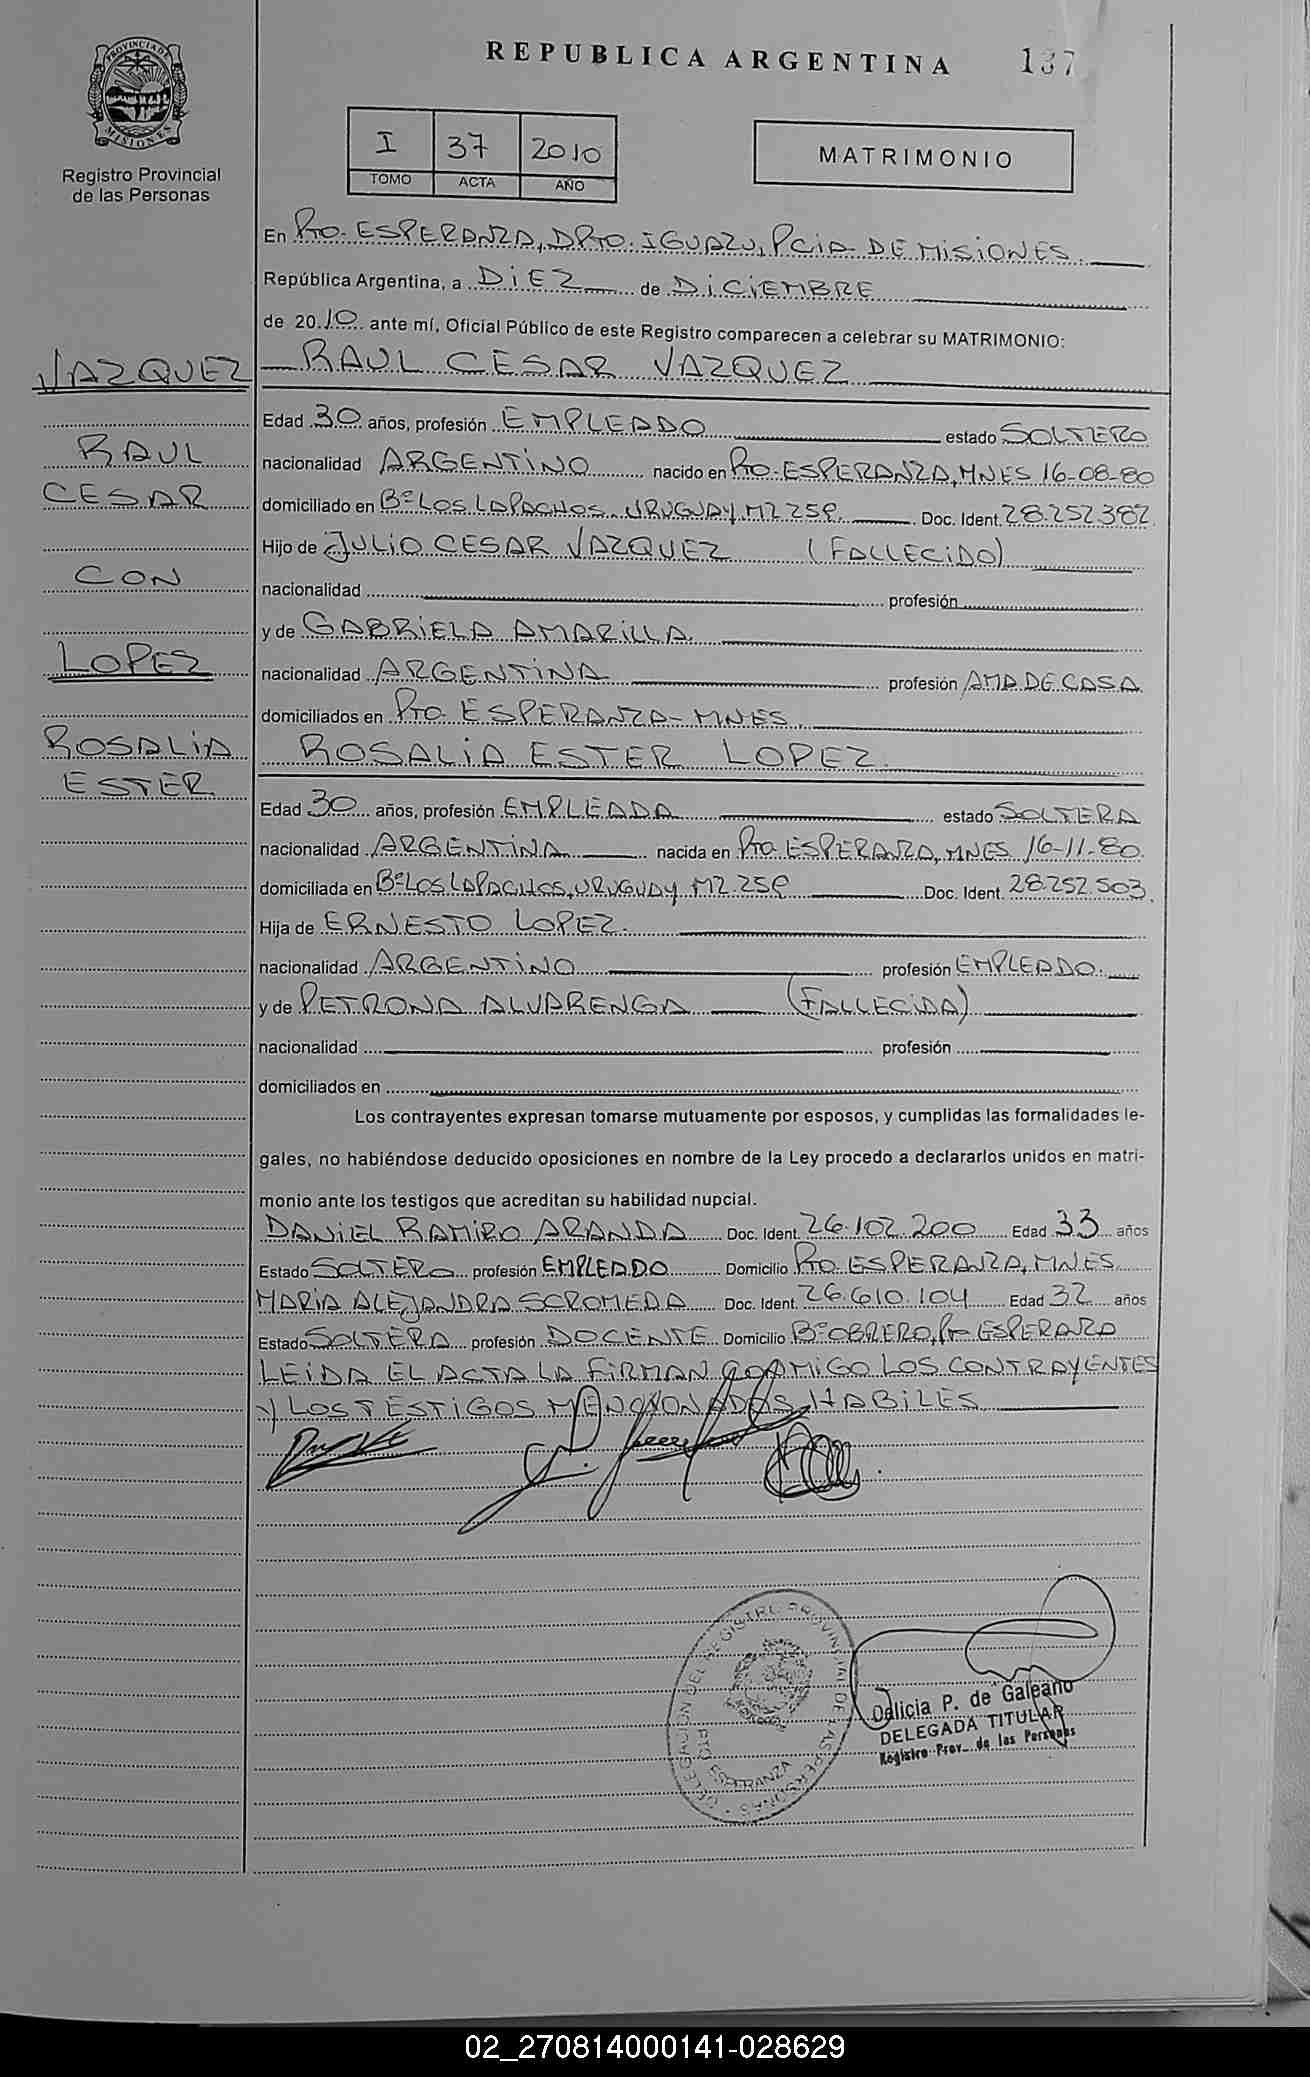 REPUBLICA ARGENTINA 137
PROVINCIA DE MISIONES
Registro Provincial
de las Personas
I 37 2010
TOMO ACTA AÑO
MATRIMONIO
En Pto. ESPERANZA, DPTO. IGUAZU, PCIA DE MISIONES.
República Argentina, a DIEZ de DICIEMBRE
de 2010 ante mí, Oficial Público de este Registro comparecen a celebrar su MATRIMONIO:
VAZQUEZ
RAUL
CESAR
CON
LOPEZ
ROSALIA
ESTER
RAUL CESAR VAZQUEZ
Edad 30 años, profesión EMPLEADO estado SOLTERO
nacionalidad ARGENTINO nacido en Pto. ESPERANZA, MNES 16-08-80
domiciliado en Bº LOS LAPACHOS, URUGUAY MZ 25P Doc. Ident. 28.252.382
Hijo de JULIO CESAR VAZQUEZ (FALLECIDO)
nacionalidad profesión
y de GABRIELA AMARILLA
nacionalidad ARGENTINA profesión AMA DE CASA
domiciliados en Pto ESPERANZA-MNES.
ROSALIA ESTER LOPEZ.
Edad 30 años, profesión EMPLEADA estado SOLTERA
nacionalidad ARGENTINA nacida en Pto ESPERANZA, MNES 16-11-80.
domiciliada en Bº LOS LAPACHOS, URUGUAY MZ. 25P Doc. Ident. 28.252.503.
Hija de ERNESTO LOPEZ.
nacionalidad ARGENTINO profesión EMPLEADO.
y de PETRONA ALVARENGA (FALLECIDA)
nacionalidad profesión
domiciliados en
Los contrayentes expresan tomarse mutuamente por esposos, y cumplidas las formalidades le-
gales, no habiéndose deducido oposiciones en nombre de la Ley procedo a declararlos unidos en matri-
monio ante los testigos que acreditan su habilidad nupcial.
DANIEL RAMIRO ARANDA Doc. Ident. 26.102.200 Edad 33 años
Estado SOLTERO profesión EMPLEADO Domicilio Pto ESPERANZA, MNES
MARIA ALEJANDRA SCROMEDA Doc. Ident. 26.610.104 Edad 32 años
Estado SOLTERA profesión DOCENTE Domicilio Bº OBRERO, Pto ESPERANZA
LEIDA EL ACTA LA FIRMAN CONMIGO LOS CONTRAYENTES
Y LOS TESTIGOS MENCIONADOS HABILES
DELEGACION DEL REGISTRO PROVINCIAL DE LAS PERSONAS
PTO ESPERANZA
Delicia P. de Galeano
DELEGADA TITULAR
Registro Prov. de las Personas
02_270814000141-028629